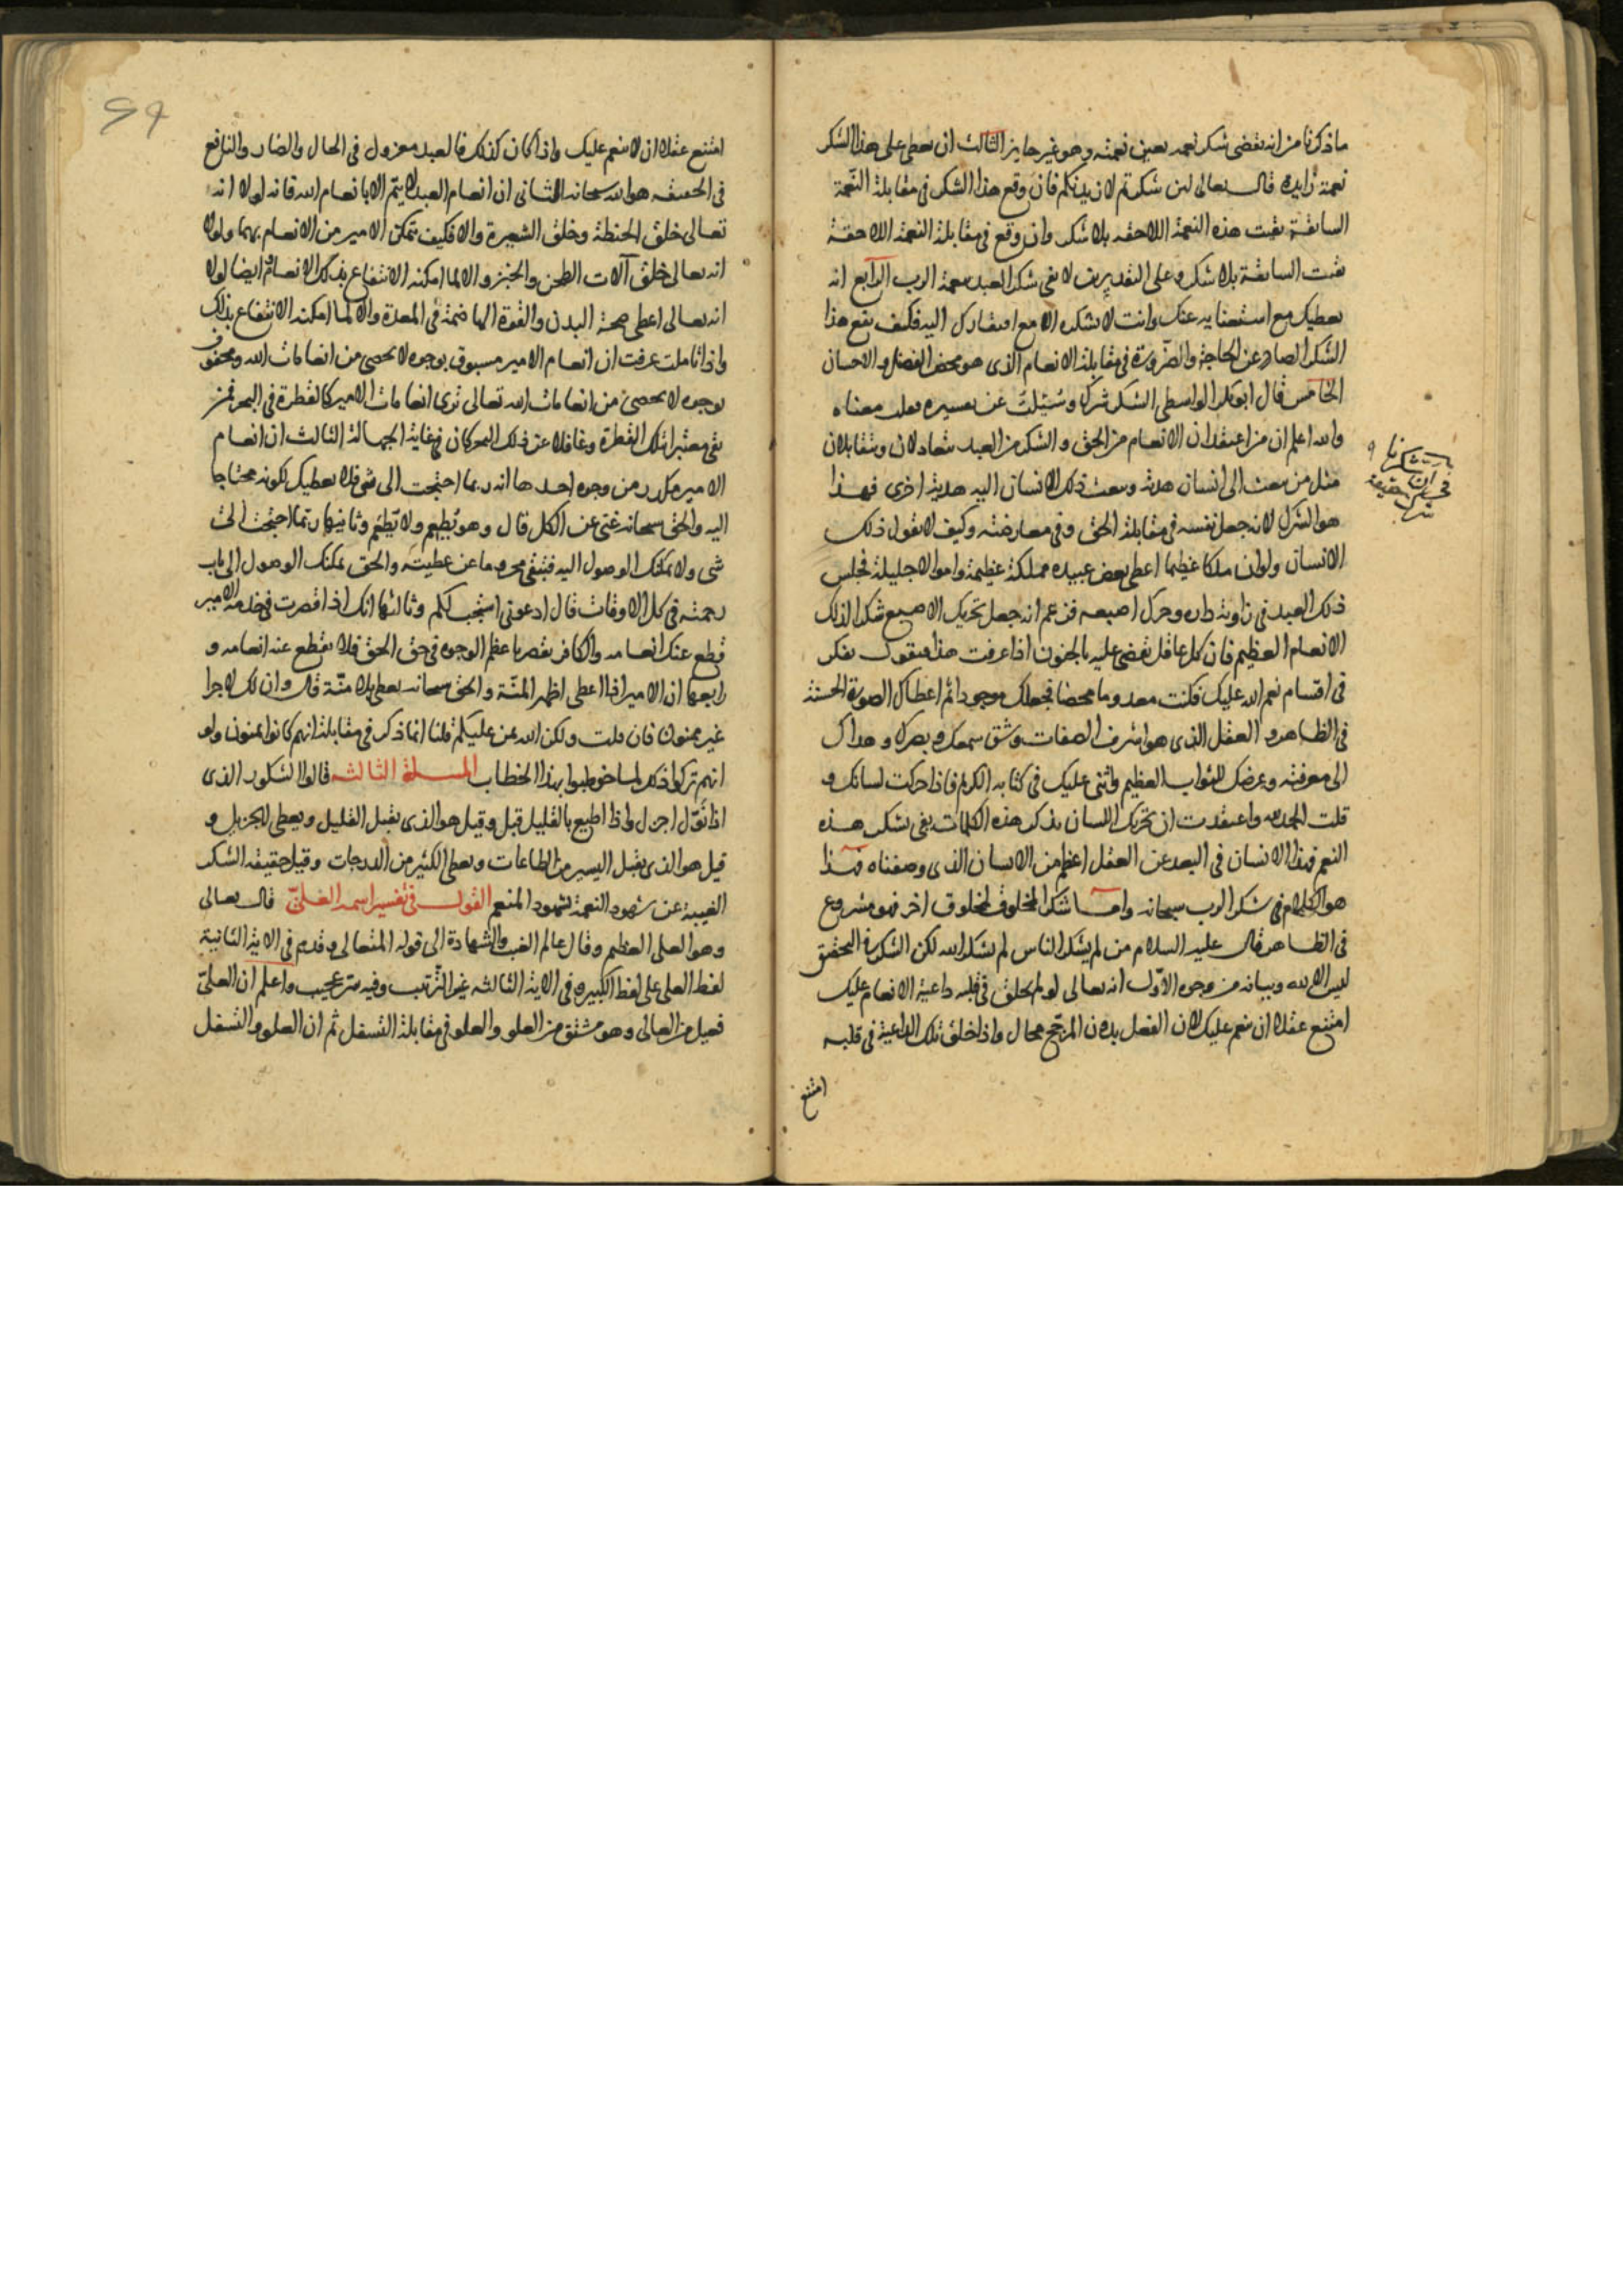 ماذكرنا من انه يقتضى شكر نعمه بعين نعمته وهو غير جايز الثالث ان يعطى على هذا الشكر
نعمة زايدة قال تعالى لئن شكرتم لازيدنكم فان وقع هذا الشكر فى مقابلة النعمة
السابقة بقيت هذه النعمة اللاحقه بلا شكر وان وقع فى مقابلة النعمة اللاحقة
بقيت السابقة بلا شكر وعلى التقديرين لا يفى شكر العبد بنعمة الرب الرابع انه
يعطيك مع استغنايه عنك وانت لا تشكره الا مع افتقارك اليه فكيف يقع هذا
الشكر الصادر عن الحاجة والضرورة فى مقابلة الانعام الذى هو محض الفضل والاحسان
الخامس قال ابو بكر الواسطى الشكر شرك وسئلت عن تفسيره فقلت معناه
والله اعلم ان من اعتقد ان الانعام من الحق والشكر من العبد يتعادلان ويتقابلان
مثل من بعث الى انسان هدية وبعث ذلك الانسان اليه هدية اخرى فهذا
هو الشرك لانه جعل نفسه فى مقابلة الحق وفى معارضته وكيف لا يقول ذلك
الانسان ولو ان ملكا عظيما اعطى بعض عبيده مملكة عظيمة واموالا جليلة فجلس
ذلك العبد فى زاوية داره وحرك اصبعه فزعم انه جعل تحريك الاصبع شكرا لذلك
الانعام العظيم فان كل عاقل يقضى عليه بالجنون اذا عرفت هذا فنقول تفكر
فى اقسام نعم الله عليك فكنت معدوما محضا فجعلك موجودا ثم اعطاك الصورة الحسنة
فى الظاهر والعقل الذى هو اشرف الصفات وشق سمعك وبصرك وهداك
الى معرفته وعرضك للثواب العظيم واثنى عليك فى كتابه الكريم فاذا حركت لسانك و
قلت الحمد لله واعتقدت ان تحريك اللسان بذكر هذه الكلمات يفى بشكر هذه
النعم فهذا الانسان فى البعد عن العقل اعظم من الانسان الذى وصفناه فهذا
هو الكلام فى شكر الرب سبحانه واما شكر المخلوق لمخلوق اخر فهو مشروع
فى الظاهر قال عليه السلام من لم يشكر الناس لم يشكر الله لكن الشكر فى التحقيق
ليس الا لله وبيانه من وجوه الاول انه تعالى لو لم يخلق فى قلبه داعية الانعام عليك
امتنع عقلا ان ينعم عليك لان الفعل بدون المرجح محال واذا خلق تلك الداعية فى قلبه
امتنع
امتنع عقلا ان لا ينعم عليك واذا كان كذلك فالعبد معزول فى الحال والضار والنافع
فى الحقيقه هو الله سبحانه الثانى ان انعام العبد لا يتم الا بانعام الله فانه لولا انه
تعالى خلق الحنطة وخلق الشعيرة والا فكيف تمكن الامير من الانعام بهما ولولا
انه تعالى خلق آلات الطحن والخبز والا لما امكنه الانتفاع بذلك الانعام وايضا لولا
انه تعالى اعطى صحة البدن والقوة الهاضمة فى المعدة والا لما امكنه الانتفاع بذلك
واذا تاملت عرفت ان انعام الامير مسبوق بوجوه لا تحصى من انعامات الله ومحفوف
بوجوه لا تحصى من انعامات الله تعالى ترى انعامات الامير كالقطرة فى البحر فمن
بقى معتبرا تلك القطرة وغافلا عن ذلك البحر كان فى غاية الجهالة الثالث ان انعام
الامير مكدر من وجوه احدها انه ربما احتجت الى شى فلا يعطيك لكونه محتاجا
اليه والحق سبحانه غنى عن الكل قال وهو يطعم ولا يطعم وثانيها ربما احتجت الى
شى ولا يمكنك الوصول اليه فتبقى محروما عن عطيته والحق يمكنك الوصول الى باب
رحمته فى كل الاوقات قال ادعونى استجب لكم وثالثها انك اذا قصرت فى خدمة الامير
قطع عنك انعامه والكافر يقصر باعظم الوجوه فى حق الحق فلا يقطع عنه انعامه و
رابعها ان الامير اذا اعطى اظهر المنة والحق سبحانه يعطى بلا منة قال وان لك لاجرا
غير ممنون فان قلت ولكن الله يمن عليكم قلنا انما ذكر فى مقابلة انهم كانوا يمنون ولو
انهم تركوا ذكر لما خوطبوا بهذا الخطاب المسلة الثالثه قالوا الشكور الذى
اذا نول اجزل واذا اطيع بالقليل قبل وقيل هو الذى يقبل القليل ويعطى الجزيل و
قيل هو الذى يقبل اليسير من الطاعات ويعطى الكثير من الدرجات وقيل حقيقه الشكر
الغيبة عن شهود النعمة لشهود المنعم القول فى تفسير اسمه العلى قال تعالى
وهو العلى العظيم وقال عالم الغيب والشهادة الى قوله المتعالى وقدم فى الاية الثانية
لفظ العلى على لفظ الكبير وفى الاية الثالثه غير الترتيب وفيه سر عجيب واعلم ان العلى
فعيل من العالى وهو مشتق من العلو والعلو فى مقابلة السفل ثم ان العلو والسفل